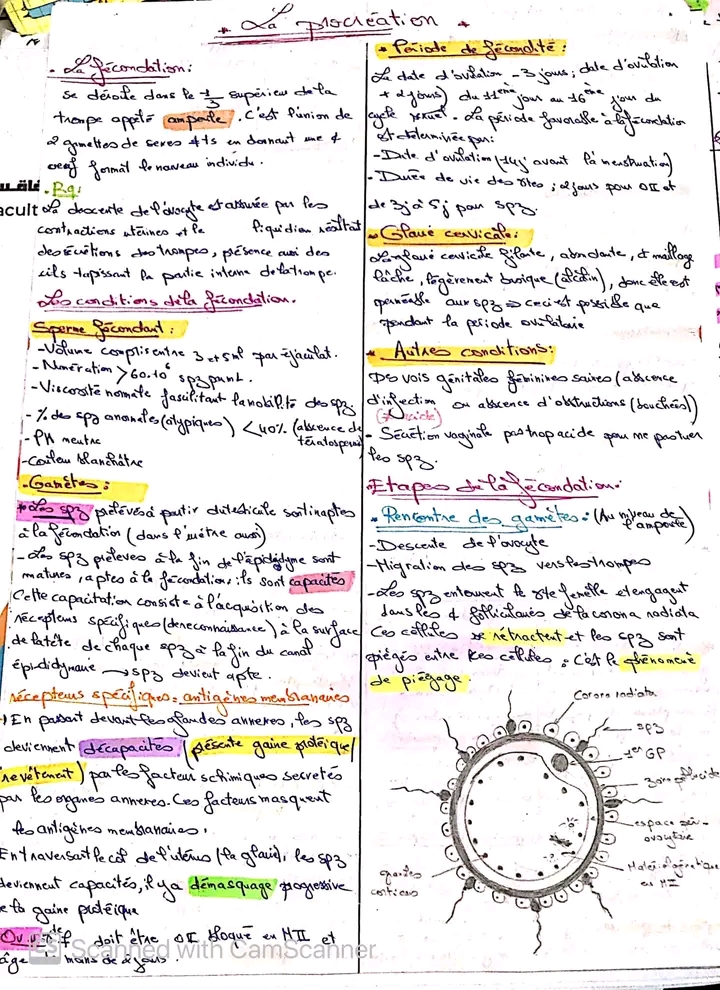 * La procréation *
• La fécondation :
se déroule dans le 1/3 supérieur de la
trompe appelé ampoule. C'est l'union de
2 gamettes de sexes ≠ts en donnant une
oeuf formal le nouveau individu.
Rq:
acult
La descente de l'ovocyte est assurée par les
contractions utérines et le liquidien résultat
des sécrétions des trompes, présence aussi des
cils tapissant la partie interne de la trompe.
Les conditions de la fécondation.
Sperme fécondant :
- Volume compris entre 3 et 5ml par éjaculat.
- Numération > 60.10⁶ spz par mL.
- Viscosité normale fascilitant la mobilité des spz
- % des spz anormales (atypiques) < 40% (abscence de
tératospermie
- PH neutre
- Couleur blanchâtre
- Gamètes :
* Les spz prélevés à partir du testicule sont inaptes
à la fécondation (dans l'urètre aussi)
- Les spz prélevés à la fin de l'épididyme sont
matures, aptes à la fécondation: ils sont capacités
Cette capacitation consiste à l'acquisition des
récepteurs spécifiques (de reconnaissance) à la surface
de la tête de chaque spz à la fin du canal
épididymaire → spz devient apte.
récepteurs spécifiques = antigènes membranaires
En passant devant les glandes annexes, les spz
deviennent décapacités (présente gaine protéique/
revêtement) par les facteurs chimiques secretés
par les organes annexes. Ces facteurs masquent
les antigènes membranaires.
En traversant le col de l'utérus (la glaire), les spz
deviennent capacités, il y a démasquage progressive
e la gaine protéique
doit être OII bloqué en MII et
âge moins de 2 jours
Scanned with CamScanner
* Période de fécondité :
La date d'ovulation - 3 jours ; date d'ovulation
+ 2 jours) du 11ème jour au 16ème jour du
cycle sexuel. La période favorable à la fécondation
est determinée par:
- Date d'ovulation (14j avant la menstruation)
- Durée de vie des ; 2 jours pour OII et
de 3j à 5j pour spz.
* Glaire cervicale:
La glaire cervicale filante, abondante, et maillage
lâche, légèrement basique (alcalin), donc elle est
perméable aux spz ⇒ ceci est possible que
pendant la période ovulatoire
* Autres conditions:
Des vois génitales féminines saines (abscence
d'infection ou abscence d'obstructions (bouchées))
- Sécrétion vaginale pas trop acide pour ne pas tuer
les spz.
Etapes de la fécondation.
* Rencontre des gamètes. (Au niveau de
l'ampoule)
- Descente de l'ovocyte
- Migration des spz vers les trompes
- Les spz entourent le gte femelle et engagent
dans les folliculaires de la corona radiata
Ces cellules se rétractent et les spz sont
piégés entre les cellules : C'est le phénomène
de piégeage.
Corona radiata
spz
1er GP
zone pellucide
espace péri-
ovocytaire
en MII
granules
corticaux